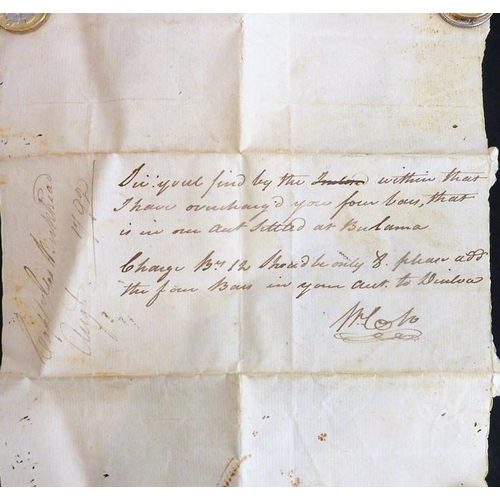 Sir: youl find by the within that
I have overcharg'd you four bars, that
is in our Acct Settled at Bulama
Charge Brs 12 Should be only 8. please add
the four Bars in your acct. to
Wm
1792